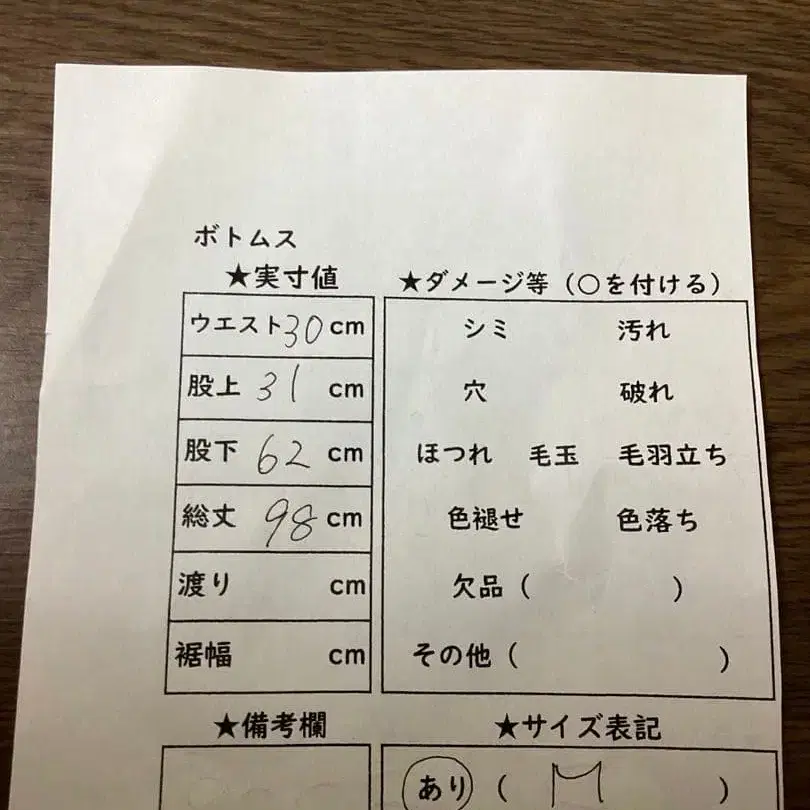 ボトムス
★実寸値
ウエスト30cm
股上 31 cm
股下 62 cm
総丈 98 cm
渡り cm
裾幅 cm
★ダメージ等（○を付ける）
シミ 汚れ
穴 破れ
ほつれ 毛玉 毛羽立ち
色褪せ 色落ち
欠品（ ）
その他（ ）
★備考欄
★サイズ表記
あり（ M ）